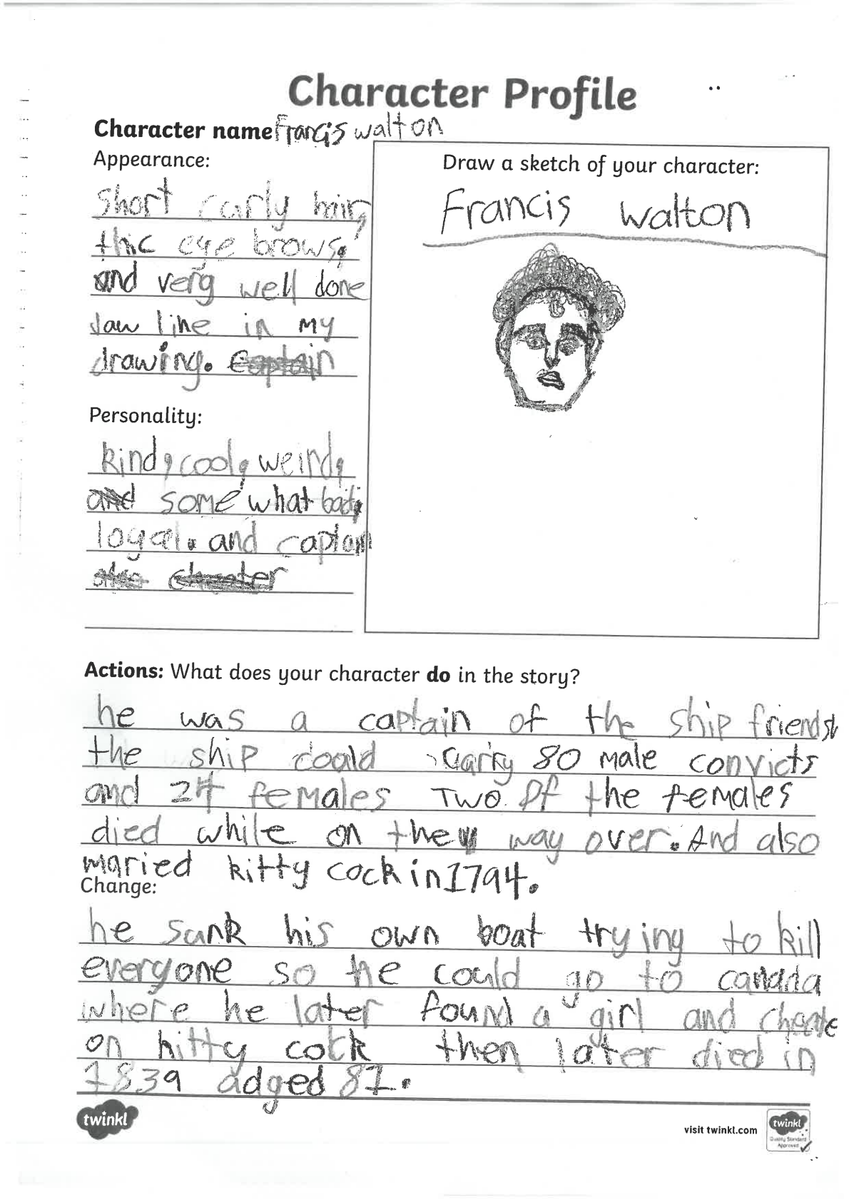 Character Profile
Character name Francis walton
Appearance:
Short carly hair,
thic eye brows,
and very well done
Jaw line in my
drawing. Captain
Draw a sketch of your character:
Francis walton
Personality:
kind, cool, weird,
and some what bad,
loyal. and captain
Actions: What does your character do in the story?
he was a captain of the ship friendsh
the ship could carry 80 male convicts
and 24 females Two of the females
died while on the way over. And also
maried kitty cock in 1794.
Change:
he sunk his own boat trying to kill
everyone so he could go to canada
where he later found a girl and cheate
on kitty cock then later died in
1839 adged 87.
twinkl
visit twinkl.com
twinkl
Quality Standard
Approved